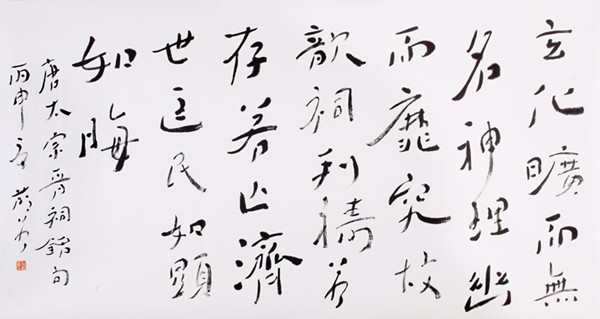 玄化曠而無
名神理幽
而靡究故
歆祠利禱若
存若亡濟
世匡民如顯
如晦
唐太宗晉祠銘句
丙申